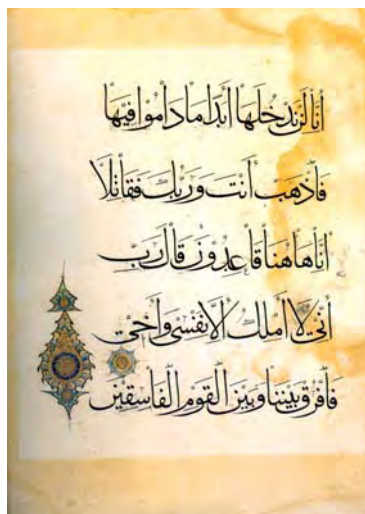 انا لن ندخلها ابدا ما داموا فيها
فاذهب انت وربك فقاتلا
انا هاهنا قاعدون قال رب
اني لا املك الا نفسي واخي
فافرق بيننا وبين القوم الفاسقين